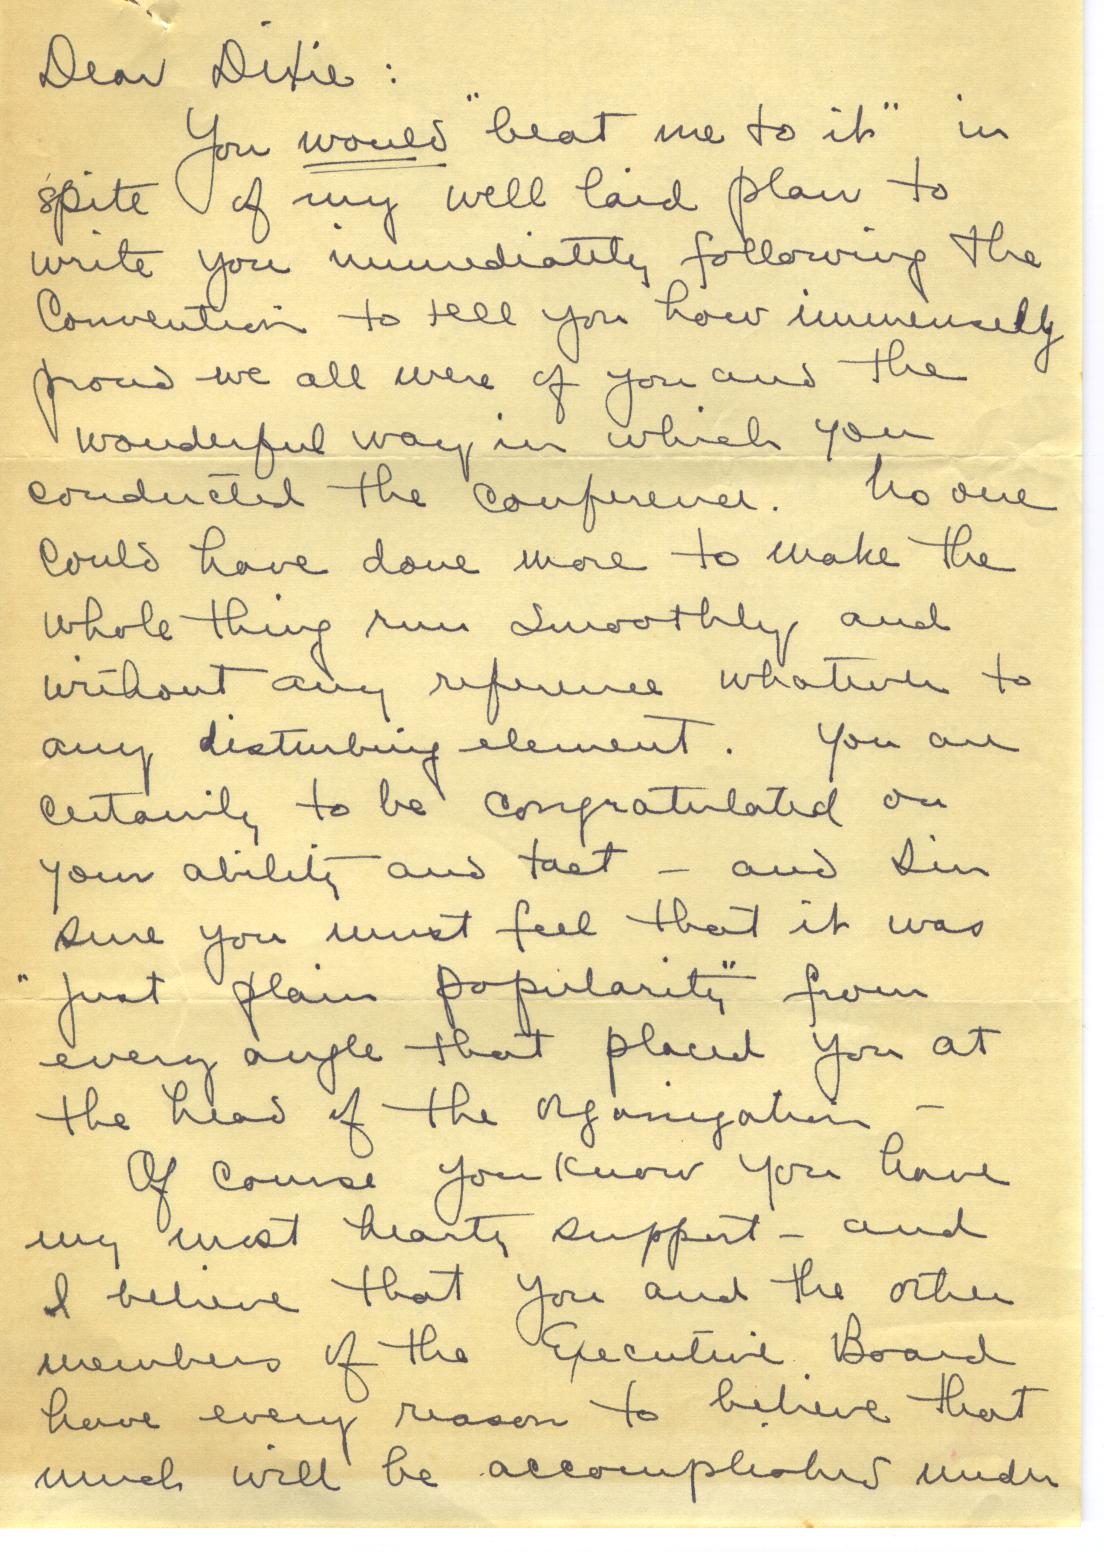 Dear Dixie :
You would "beat me to it" in
spite of my well laid plan to
write you immediately following the
Convention to tell you how immensely
proud we all were of you and the
wonderful way in which you
conducted the conference. No one
could have done more to make the
whole thing run smoothly and
without any reference whatever to
any disturbing element. You are
certainly to be congratulated on
your ability and tact - and I'm
sure you must feel that it was
"just plain popularity" from
every angle that placed you at
the head of the organization -
Of course you know you have
my most hearty support - and
I believe that you and the other
members of the Executive Board
have every reason to believe that
much will be accomplished under